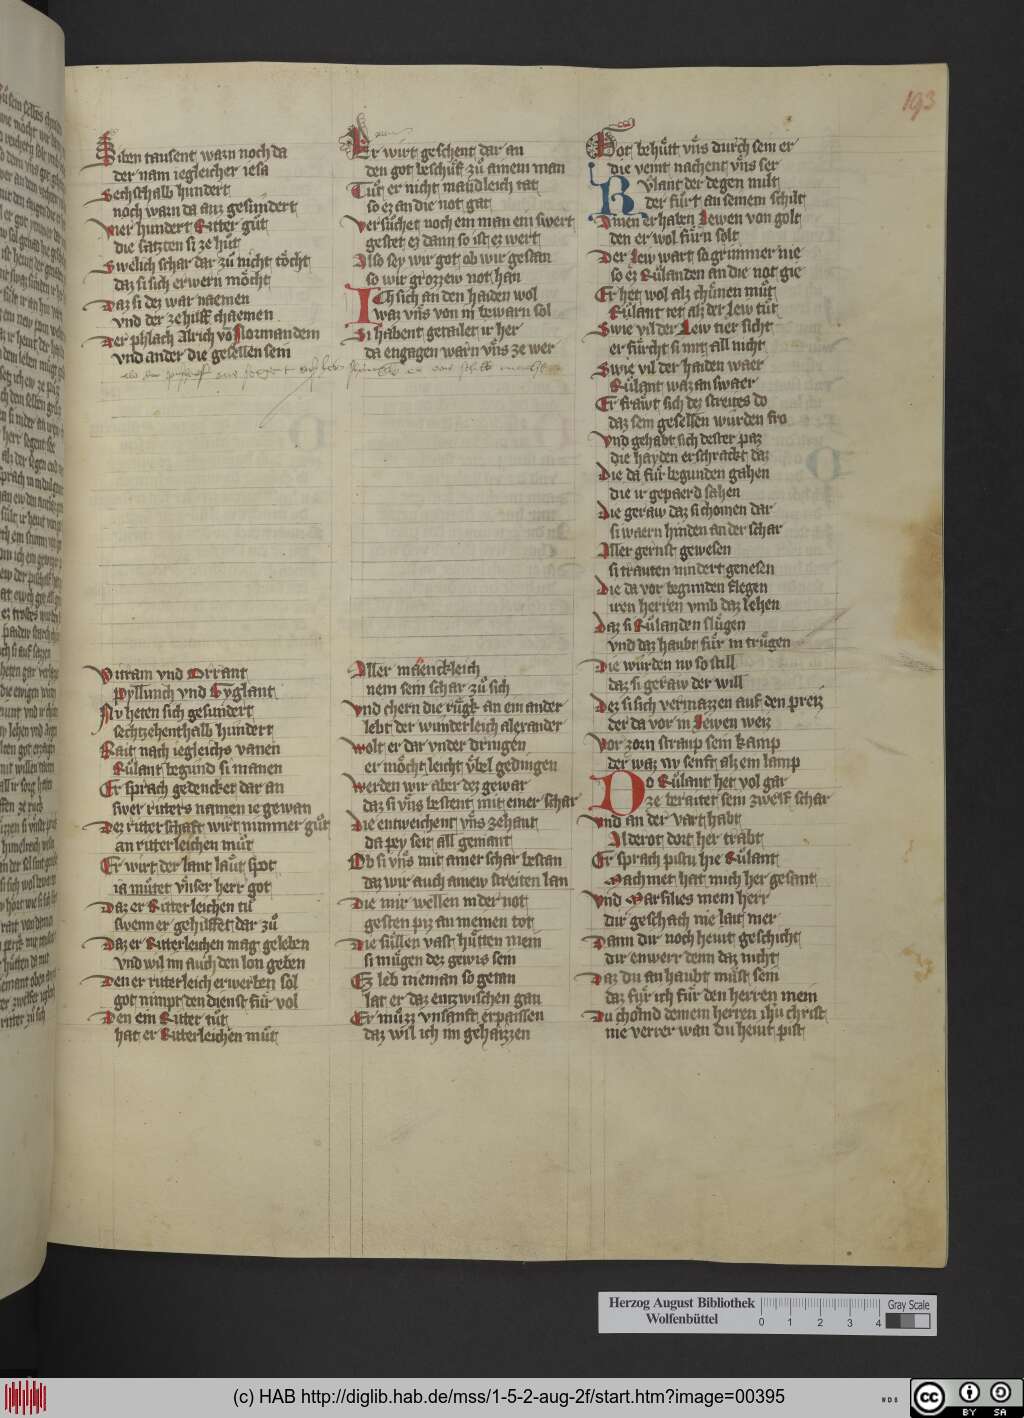 193
Siben tausent warn noch da
der nam iegleicher iesa
Sechsthalb hundert
noch warn da auz gesundert
Vier hundert Ritter gůt
die satzten si ze hůt
Swelich schar dar zů nicht töcht
daz si sich erwern möcht
Daz si dez war naemen
vnd der ze hilff chaemen
Der phlach Alrich vō Normandem
vnd ander die gesellen sein
Witram vnd Orrant
pyllunch vnd Syglant
Nv heten sich gesundert
sechtzehenthalb hundert
Rait nach iegleichs vanen
Růlant begund si manen
Er sprach gedencket dar an
swer ritters namen ie gewan
Dez ritterschaft wirt nimmer gůt
an ritterleichen můt
Er wirt der lant laůt spot
ia můtet vnser herr got
Daz er Ritterleichen tů
swenn er gehilffet dar zů
Daz er Ritterleichen mag geleben
vnd wil im auch den lon geben
Den er ritterleich erwerben sol
got nimpt den dienst für vol
Den ein Ritter tůt
hat er Ritterleichen můt
Er wirt geschent dar an
den got beschůff zů ainem man
Tůt er nicht mandleich tat
so ez an die not gat
Versůchet noch ein man ein swert
gestet ez dann so ist ez wert
Also sey wir got ob wir gestan
so wir grozzew not han
Ich sich an den haiden wol
waz vns von in bewarn sol
Si habent getailet ir her
da engagen warn vns ze wer
Aller maenckleich
nem sein schar zů sich
Vnd chern die rügk an ein ander
lebt der wunderleich alexander
Wolt er dar vnder dringen
er möcht leicht übel gedingen
Werden wir aber dez gewar
daz si vns bestent mit einer schar
Die entweichent vns zehant
da pey seit all gemant
Ob si vns mit ainer schar bestan
daz wir auch ainew streiten lan
Die mir wellen in der not
gesten piz an meinen tot
Die süllen vast hütten mein
si mügen dez gewis sein
Ez leb nieman so getan
lat er daz entzwischen gan
Er můzz vnsanft erpaissen
daz wil ich im gehaizzen
Got behůtt vns durch sein er
die veint nachent vns ser
Růlant der degen milt
der fůrt an seinem schilt
Ainen erhaben Lewen von golt
den er wol fůrn solt
Der Lew wart so grimmer nie
so ez Růlanden an die not gie
Er het wol alz chůnen můt
Růlant tet alz der Lew tůt
Swie vil der Lew tier sicht
er fürcht si mit all nicht
Swie vil der haiden waer
Růlant waz an swaer
Er frawt sich dez streites do
daz sein gesellen wurden fro
Vnd gehabt sich dester paz
die hayden erschrackt daz
Die da für begunden gahen
die ir gepaerd sahen
Die geraw daz si chomen dar
si waern hinden an der schar
Aller gernst gewesen
si trauten nindert genesen
Die da vor begunden klegen
iren herren vmb daz lehen
Daz si Růlanden slügen
vnd daz haubt für in trügen
Die wurden nv so still
daz si geraw der will
Dez si sich vermazzen auf den preiz
der da vor in Lewen weiz
Vor zorn straup sein kamp
der waz nv senft alz ein lamp
Do Růlant het vol gar
ze beraitet sein zwelf schar
Vnd an der vart habt
Alderot dort her trabt
Er sprach pistu hie Růlant
Machmet hat mich her gesant
Vnd Marsilies mein herr
dir geschach nie lait mer
Dann dir noch hewt geschicht
dir enwerr denn daz nicht
Daz du an haubt můst sein
daz für ich für den herren mein
Du chomd deinem herren ihū christ
nie verrer wan du hewt pist
Herzog August Bibliothek
Wolfenbüttel
0 1 2 3 4
Gray Scale
(c) HAB http://diglib.hab.de/mss/1-5-2-aug-2f/start.htm?image=00395
cc BY SA